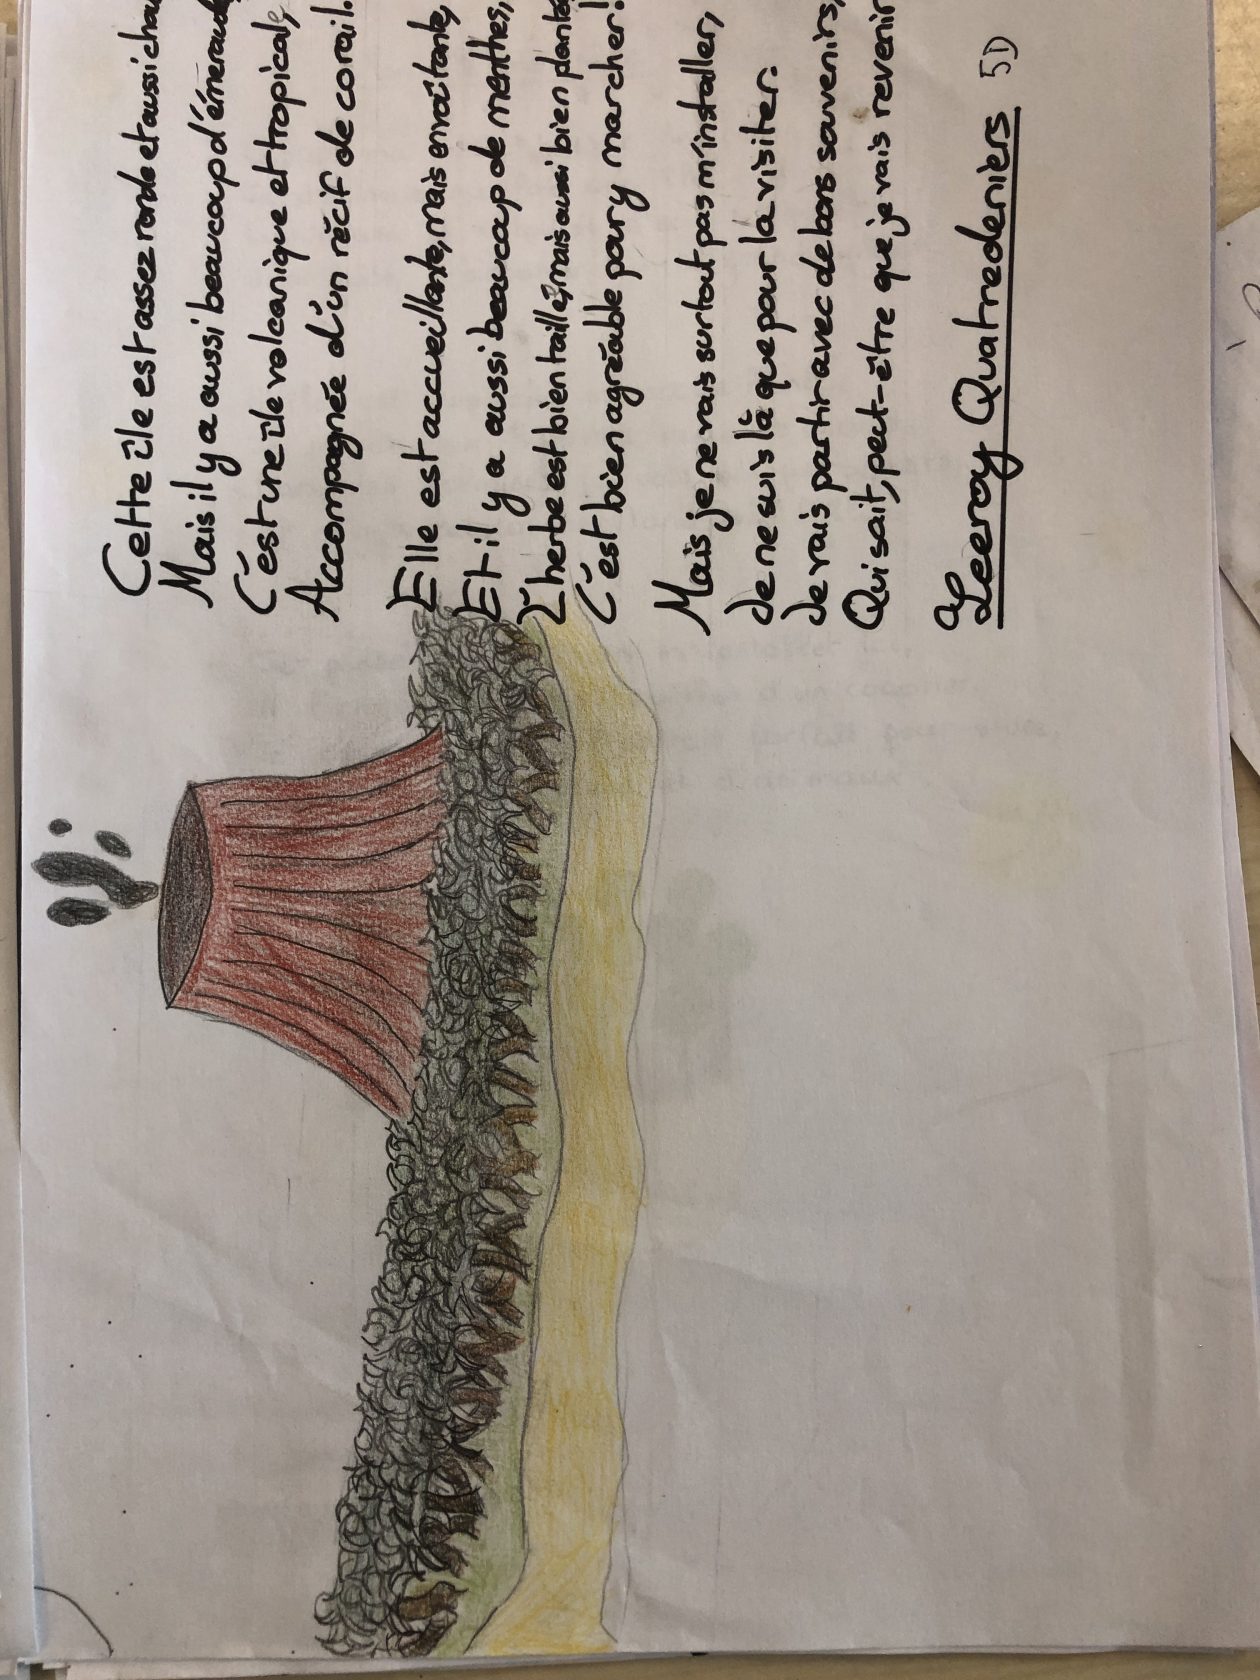 Cette île est assez ronde et aussi
Mais il y a aussi beaucoup d'émeraude
C'est une île volcanique et tropicale,
Accompagnée d'un récif de corail.
Elle est accueillante, mais envoûtante,
Et il y a aussi beaucoup de menthes,
L'herbe est bien taillé, mais aussi bien planté
C'est bien agréable pour y marcher!
Mais je ne vais surtout pas m'installer,
Je ne suis là que pour la visiter.
Je vais partir avec de bons souvenirs,
Qui sait, peut-être que je vais revenir
Leeroy Quatredeniers 5D